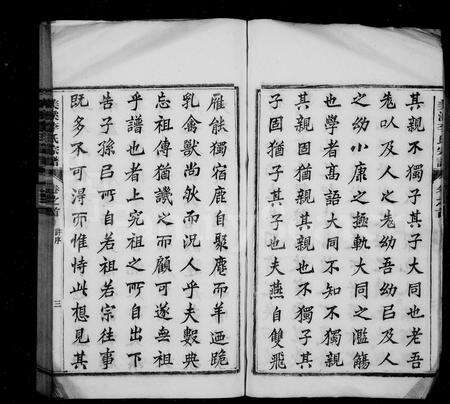 其親不獨子其子大同也老吾
老以及人之老幼吾幼以及人
之幼小康之極軌大同之濫觴
也學者高語大同不知不獨親
其親猶親其親也不獨子其
子固猶子其子也夫燕自雙飛
雁能獨宿鹿自聚麀而羊迺跪
乳禽獸尚然而況人乎夫數典
忘祖傳猶譏之而顧可遂無祖
乎譜也者上究祖之所自出下
告子孫以所自若祖若宗往事
既多不可得而惟恃此想見其
李氏宗譜
卷之首
譜序
三